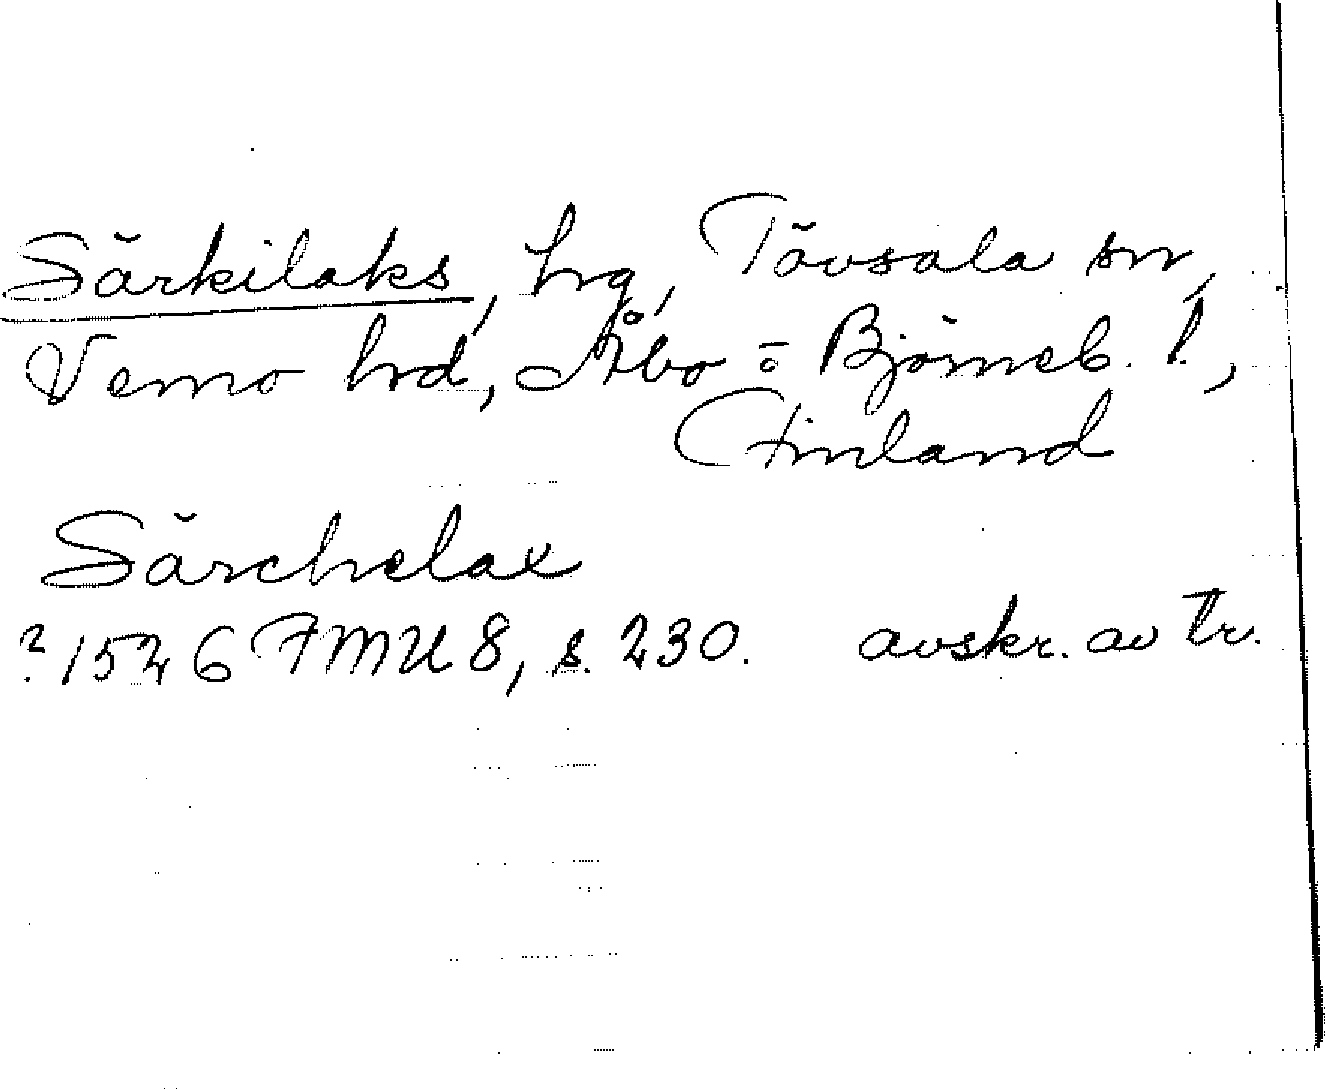 Särkilaks, hrg, Tövsala sn,
Vemo hrd, Åbo = o Björneb. l.,
Finland
Särchelax
? 1526 FMU 8, s. 230. avskr. av tr.